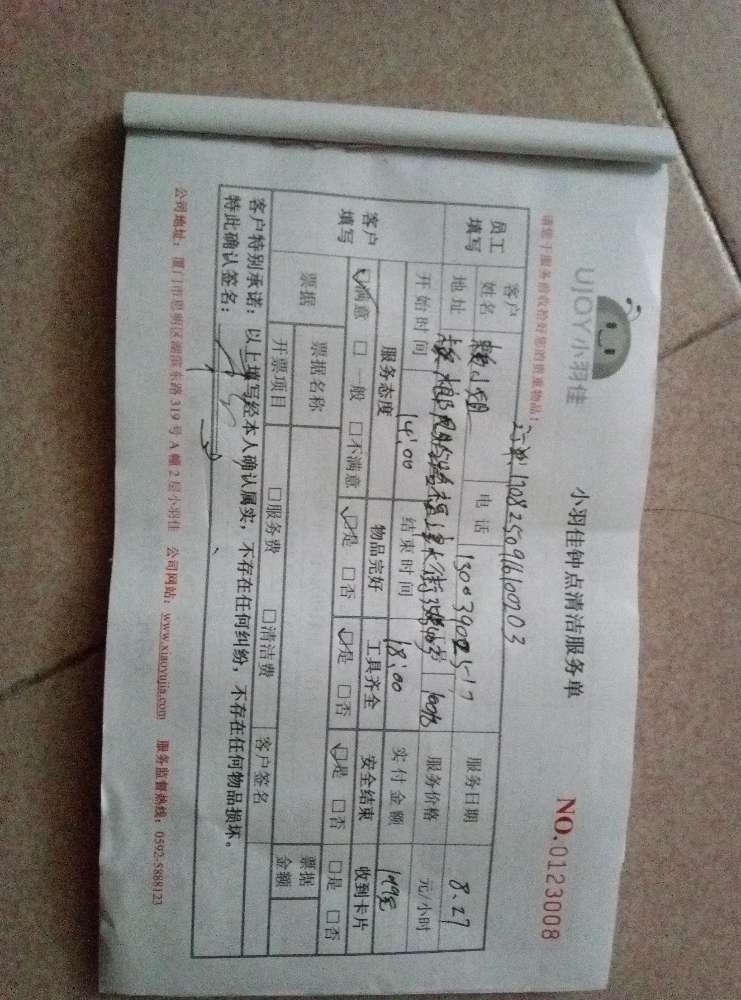 UJOY小羽佳
小羽佳钟点清洁服务单
NO.0123008
请您于服务前收拾好您的贵重物品!
170825096100203
员工填写 客户姓名 赖小姐 电话 服务日期 8.27
地址 服务价格 元/小时
开始时间 14:00 结束时间 18:00 实付金额 199元
客户填写 服务态度 物品完好 工具齐全 安全结束 收到卡片
☑满意 □一般 □不满意 ☑是 □否 ☑是 □否 ☑是 □否 □是 □否
票据 票据名称 票据金额
开票项目 □服务费 □清洁费 客户签名
客户特别承诺:以上填写经本人确认属实,不存在任何纠纷,不存在任何物品损坏。
特此确认签名:
公司地址:厦门市思明区湖滨东路319号A幢2层小羽佳 公司网站:www.xiaoyujia.com 服务监督热线:0592-5888123